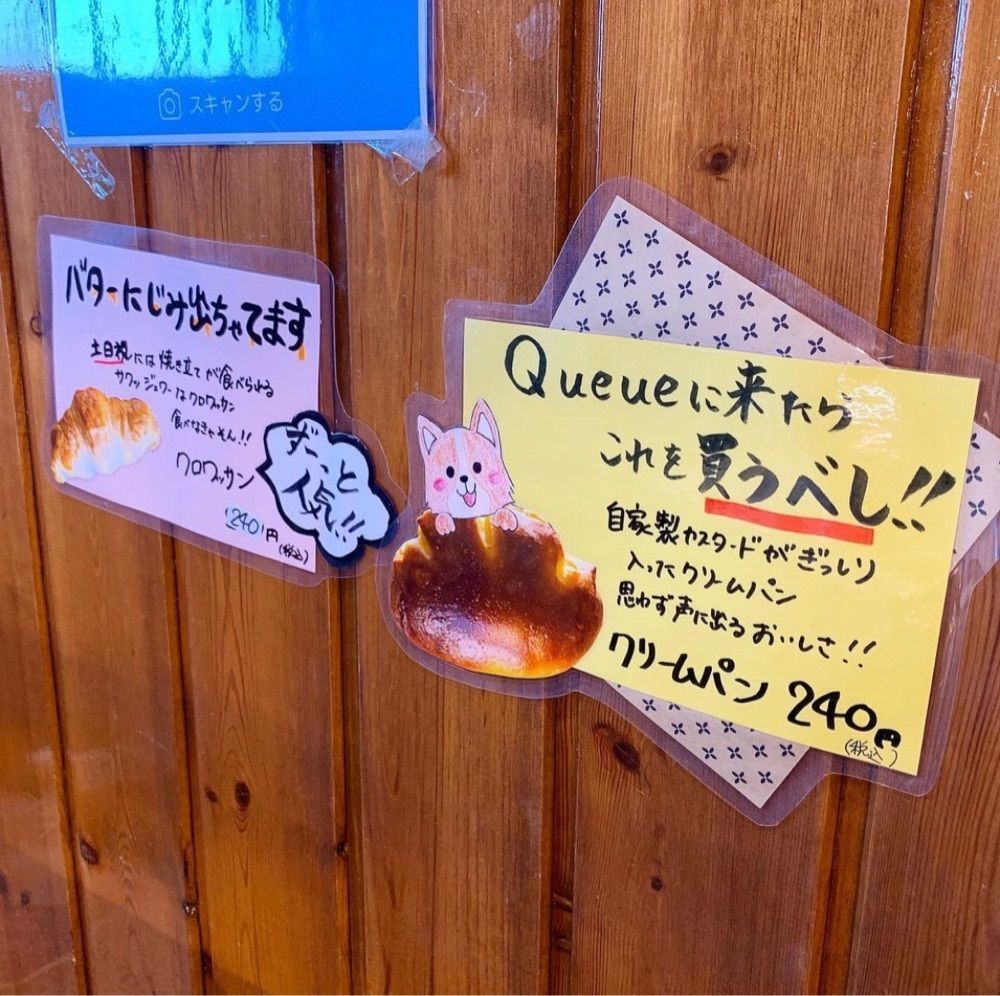 スキャンする
バターにじみ出ちゃてます
土日祝には焼き立てが食べられる
サクッジュワ―なクロワッサン
食べなきゃそん!!
クロワッサン
240円
(税込)
ずーっと
人気!!
Queueに来たら
これを買うべし!!
自家製カスタードがぎっしり
入ったクリームパン
思わず声に出るおいしさ!!
クリームパン 240円
(税込)